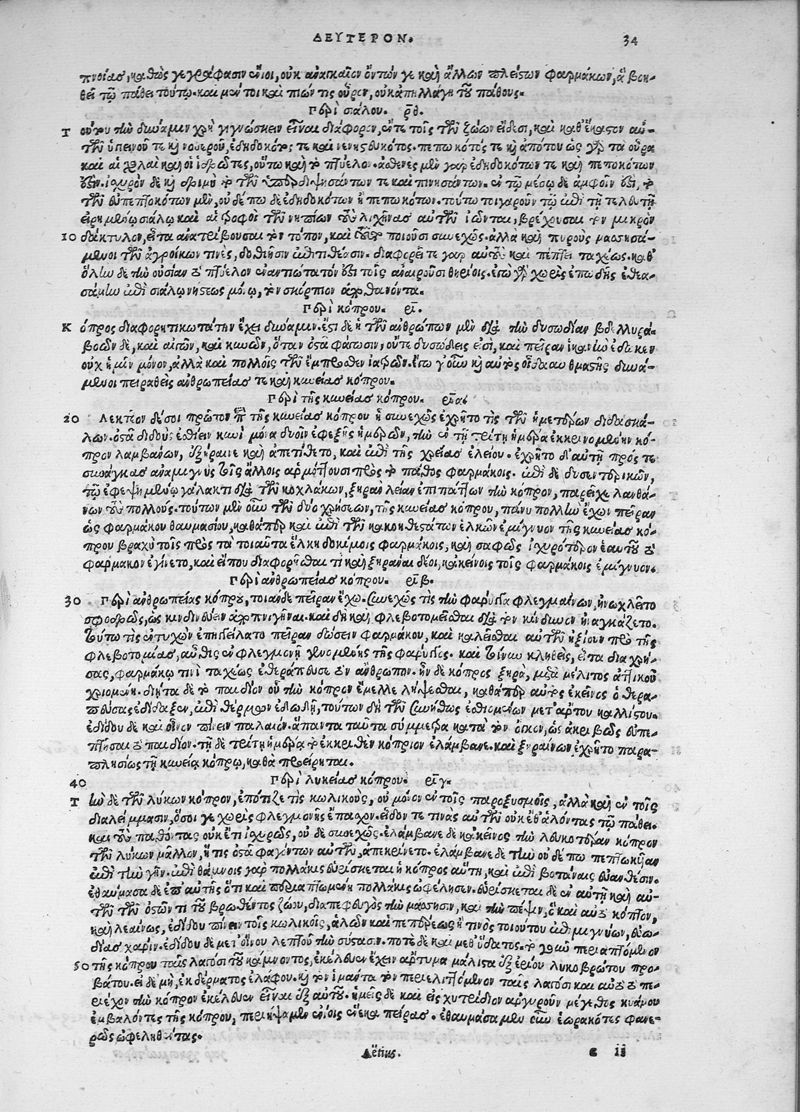 ΔΕΥΤΕΡΟΝ. 34
πνοίας, καθὼς γεγράφασιν ἔνιοι, οὐκ ἀναγκαῖον ὄντων γε καὶ ἄλλων πλείστων φαρμάκων, ἃ βοη-
θεῖ τῷ πάθει τούτῳ. καὶ μέντοι καὶ πιών τις οὖρον, οὐκ ἀπηλλάγη τοῦ πάθους.
Περὶ σιάλου. ρθ.
Τούτου τὴν δύναμιν χρὴ γιγνώσκειν εἶναι διάφορον, ἔν τε τοῖς τῶν ζώων εἴδεσι, καὶ καθ' ἕκαστον αὐ-
τῶν ὑγιεινοῦ τε καὶ νοσεροῦ, ἐδηδοκότος τε καὶ νενηστευκότος. πεπωκότος τε καὶ ἀπότου ὡς γὰρ τὰ οὖρα
καὶ αἱ χολαὶ καὶ οἱ ἱδρῶτες, οὕτω καὶ τὸ πτύελον. ἀσθενὲς μὲν γὰρ ἐδηδοκότων τε καὶ πεπωκότων
ἐστίν. ἰσχυρὸν δὲ καὶ δριμὺ τὸ τῶν ὑπερδιψησάντων τε καὶ πεινησάντων. ἐν τῷ μέσῳ δὲ ἀμφοῖν ἐστι, τὸ
τῶν εὖ πεπεφότων μὲν, οὐδέπω δὲ ἐδηδοκότων ἢ πεπωκότων. τούτῳ τοιγαροῦν τῷ ἐπὶ τῇ τελευτῇ
εἰρημένῳ σιάλῳ καὶ αἱ τροφοὶ τῶν νηπίων τοὺς λιχῆνας αὐτῶν ἰῶνται, βρέχουσαι τὸν μικρὸν
10 δάκτυλον, εἶτα ἀνατρίβουσαι τὸν τόπον, καὶ τοῦτο ποιοῦσι συνεχῶς. ἀλλὰ καὶ πυροὺς μασησά-
μενοι τῶν ἀγροίκων τινὲς, δοθιῆσιν ἐπιτιθέασιν. διαφορεῖ τε γὰρ αὐτοὺς καὶ πέπτει ταχέως. καθ'
ὅλην δὲ τὴν οὐσίαν τὸ πτύελον ἐναντιώτατόν ἐστι τοῖς ἀναιροῦσι θηρίοις. ἐγὼ γοῦν χωρὶς ἐπῳδῆς ἐθεα-
σάμην ἐπὶ σιάλῳ νήστεως μόνῳ, τὸν σκόρπιον ἀποθανόντα.
Περὶ κόπρου. ρι.
Κόπρος διαφορητικωτάτην ἔχει δύναμιν. ἔστι δὲ ἡ τῶν ἀνθρώπων μὲν διὰ τὴν δυσωδίαν βδελλυρά.
βοῶν δὲ, καὶ αἰγῶν, καὶ κυνῶν, ὅταν ὀστᾶ φάγωσιν, οὔτε δυσώδεις εἰσὶ, καὶ πεῖραν ἱκανὴν ἔδωκεν
οὐχ ἡμῖν μόνον, ἀλλὰ καὶ πολλοῖς τῶν ἔμπροσθεν ἰατρῶν. ἔγω γ' οὖν καὶ αὐτὸς οἶδα θαυμαστῆς δυνά-
μενοι πειραθεὶς ἀνθρωπείας τε καὶ κυνείας κόπρου.
Περὶ τῆς κυνείας κόπρου. ρια.
20 Λεκτέον δέ σοι πρῶτον περὶ τῆς κυνείας κόπρου ᾗ συνεχῶς ἐχρῆτό τις τῶν ἡμετέρων διδασκά-
λων. ὀστᾶ διδοὺς ἐσθίειν κυνὶ μόνα δυοῖν ἐφεξῆς ἡμερῶν, τὴν ἐν τῇ τρίτῃ ἡμέρᾳ ἐκκρινομένην κό-
προν λαμβάνων, ἐξήραινε καὶ ἀπετίθετο, καὶ ἐπὶ τῆς χρείας ἐλείου. ἐχρῆτο δ' αὐτῇ πρός τε
συνάγχας ἀναμιγνὺς τοῖς ἄλλοις ἁρμόττουσι πρὸς τὸ πάθος φαρμάκοις. ἐπὶ δὲ δυσεντερικῶν,
τῷ ἑφεψημένῳ γάλακτι διὰ τῶν κοχλάκων, ξηρὰν λείαν ἐπιπάττων τὴν κόπρον, παρεῖχε λανθά-
νων τοὺς πολλούς. τούτων μὲν οὖν τῶν δύο χρήσεων, τῆς κυνείας κόπρου, πάνυ πολλὴν ἔχων πεῖραν
ὡς φαρμάκου θαυμασίου, καθάπερ καὶ ἐπὶ τῶν κακοηθεστάτων ἑλκῶν ἐμίγνυον τῆς κυνείας κό-
πρου βραχὺ τοῖς πρὸς τὰ τοιαῦτα ἕλκη δοκίμοις φαρμάκοις, καὶ σαφῶς ἰσχυρότερον ἑαυτοῦ τὸ
φάρμακον ἐγίνετο, καὶ εἴ που διαφορεῖσθαί τι καὶ ξηρᾶναι δέοι, κἀκείνοις τοῖς φαρμάκοις ἐμίγνυον.
Περὶ ἀνθρωπείας κόπρου. ριβ.
30 Περὶ ἀνθρωπείας κόπρου, τοιάνδε πεῖραν ἔχω. συνεχῶς τις τὴν φάρυγγα φλεγμαίνων, ἠνωχλεῖτο
σφοδρῶς, ὡς κινδυνεύειν ἀποπνιγῆναι. καὶ δὴ καὶ φλεβοτομεῖσθαι διὰ τὸν κίνδυνον ἠναγκάζετο.
τούτῳ τις ἐντυχὼν ἐπηγγείλατο πεῖραν δώσειν φαρμάκου, καὶ καλεῖσθαι αὐτὸν ἠξίου πρὸ τῆς
φλεβοτομίας, αὖθις ἐν φλεγμονῇ γενομένης τῆς φάρυγγος. καὶ τοίνυν κληθεὶς, εἶτα διαχρή-
σας, φαρμάκῳ τινὶ ταχέως ἐθεράπευσε τὸν ἄνθρωπον. ἦν δὲ κόπρος ξηρὰ, μετὰ μέλιτος ἀττικοῦ
χριομένη. διῃτᾶτο δὲ τὸ παιδίον οὗ τὴν κόπρον ἔμελλε λήψεσθαι, καθάπερ αὐτὸς ἐκεῖνος ὁ θερα-
πεύσας ἐδίδαξεν, ἐπὶ θέρμων ἐδωδῇ, τούτων δὴ τῶν συνήθως ἐσθιομένων μετ' ἄρτου καλλίστου.
ἐδίδου δὲ καὶ οἶνον πίνειν παλαιόν. ἅπαντα ταῦτα σύμμετρα κατὰ τὸν ὄγκον, ὡς ἀκριβῶς εὖ πέ-
πτεσθαι τὸ παιδίον. τῇ δὲ τρίτῃ ἡμέρᾳ τὸ ἐκκριθὲν κόπριον ἐλάμβανε. καὶ ξηραίνων ἐχρῆτο παρα-
πλησίως τῇ κυνείᾳ κόπρῳ, καθὰ προείρηται.
40 Περὶ λυκείας κόπρου. ριγ.
Τὴν δὲ τῶν λύκων κόπρον, ἐπότιζέ τις κωλικοὺς, οὐ μόνον ἐν τοῖς παροξυσμοῖς, ἀλλὰ καὶ ἐν τοῖς
διαλείμμασιν, ὅσοι γε χωρὶς φλεγμονῆς ἔπασχον. εἶδόν τε τινὰς αὐτῶν οὐκ ἔτ' ἁλόντας τῷ πάθει.
καὶ τοὺς παθόντας οὐκέτι ἰσχυρῶς, οὐδὲ συνεχῶς. ἐλάμβανε δὲ κἀκεῖνος τὴν λευκοτέραν κόπρον
τῶν λύκων μᾶλλον, ἥ τις ὀστᾶ φαγόντων αὐτῶν, ἀπεκρίνετο. ἐλάμβανε δὲ τὴν οὐδέπω πεπτωκυῖαν
ἐπὶ τὴν γῆν. ἐπὶ θάμνοις γὰρ πολλάκις εὑρίσκεται ἡ κόπρος αὕτη, καὶ ἐπὶ βοτάναις εὐανθέσιν.
ἐθαύμασα δὲ ἐπ' αὐτῆς ὅτι καὶ περιαπτομένη πολλάκις ὠφέλησεν. εὑρίσκεται δὲ ἐν αὐτῇ καὶ αὐ-
τῶν τῶν ὀστῶν τι τοῦ βρωθέντος ζώου, διαπεφευγὸς τὴν μάσησιν, καὶ τὴν πέψιν, ὃ καὶ αὐτὸ κόπτων,
καὶ λεαίνων, ἐδίδου πίνειν τοῖς κωλικοῖς, ἁλῶν καὶ πεπέρεως ἤ τινος τοιούτου ἐπιμιγνύων, εὐω-
δίας χάριν. ἐδίδου δὲ μετ' οἴνου λεπτοῦ τὴν σύστασιν. ποτὲ δὲ καὶ μεθ' ὕδατος. τὸ χρῶ περιαπτόμενον
50 τῆς κόπρου ταῖς λαγόσι τοῦ κάμνοντος, ἐκέλευεν ἔχειν ἄρτυμα μάλιστα ἐξ ἐρίου λυκοβρώτου προ-
βάτου. εἰ δὲ μὴ, ἐκ δέρματος ἐλάφου. καὶ τὸν ἱμάντα τὸν περιελιττόμενον ταῖς λαγόσι καὶ αὐτὸ τὸ πε-
ριέχον τὴν κόπρον ἐκέλευεν εἶναι ἐξ αὐτοῦ. ἡμεῖς δὲ καὶ εἰς χυτρίδιον ἀργυροῦν μέγεθος κυάμου
ἐμβαλόντες τῆς κόπρου, περιήψαμεν ἐνίοις ἕνεκα πείρας. ἐθαυμάσαμεν οὖν ἑωρακότες φανε-
ρῶς ὠφεληθέντας.
Aëtius. e ii